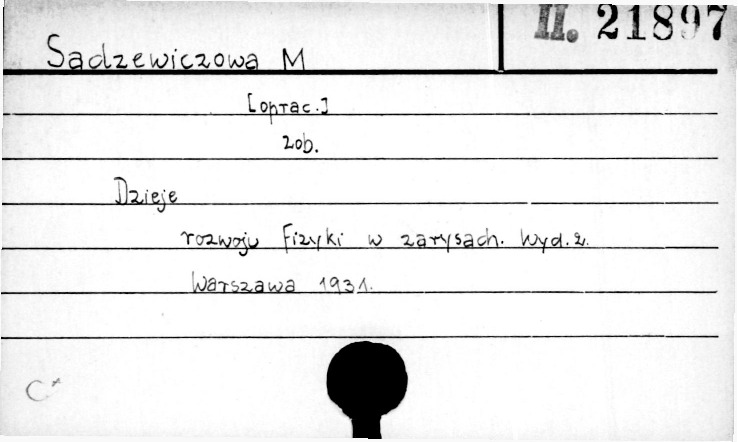 II. 21897
Sadzewiczowa M
[oprac.]
zob.
Dzieje
rozwoju fizyki w zarysach. Wyd. 2.
Warszawa 1931.
C*